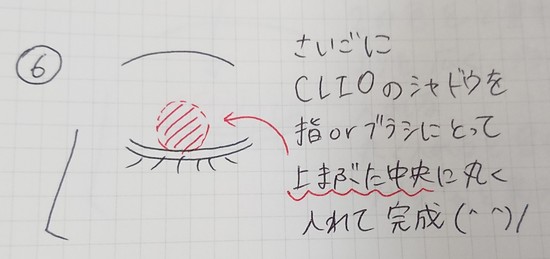 ⑥
さいごに
CLIOのシャドウを
指orブラシにとって
上まぶた中央に丸く
入れて完成(^^)/